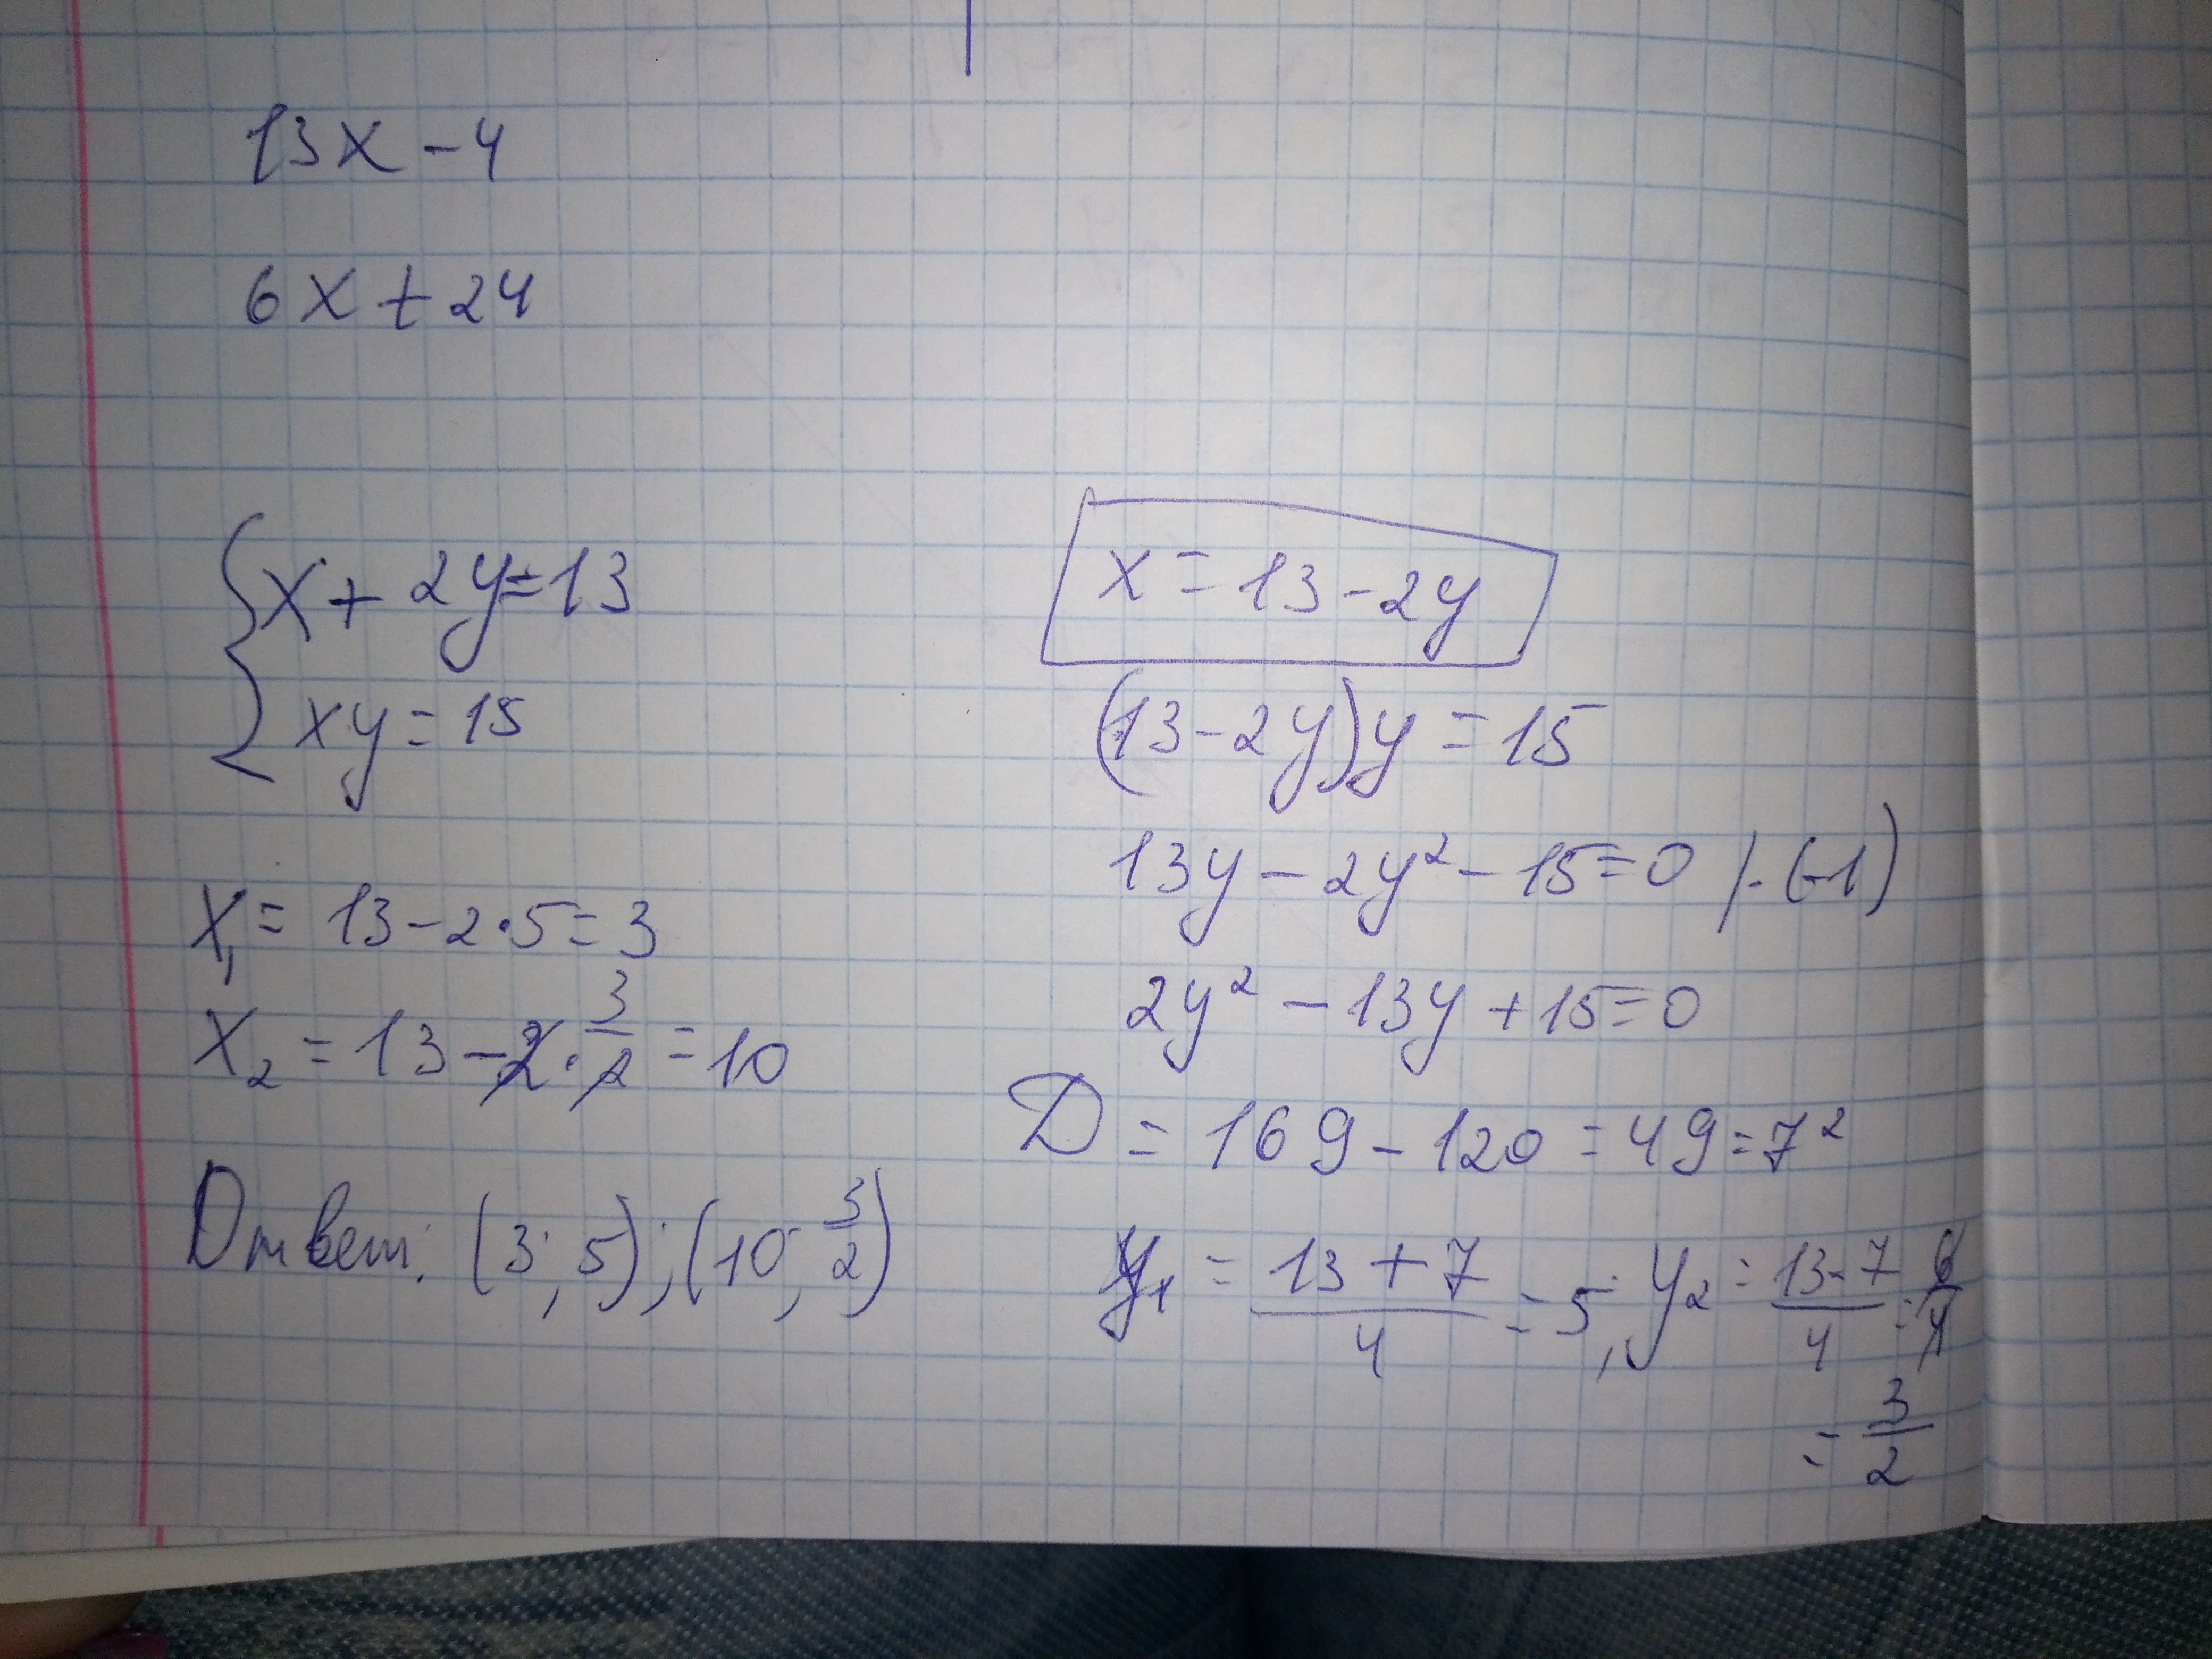 13x - 4
6x + 24
{ x + 2y = 13
xy = 15
x₁ = 13 - 2·5 = 3
x₂ = 13 - 2·3/2 = 10
Ответ: (3; 5); (10; 3/2)
x = 13 - 2y
(13 - 2y)y = 15
13y - 2y² - 15 = 0 /·(-1)
2y² - 13y + 15 = 0
D = 169 - 120 = 49 = 7²
y₁ = (13 + 7)/4 = 5; y₂ = (13 - 7)/4 = 6/4
= 3/2